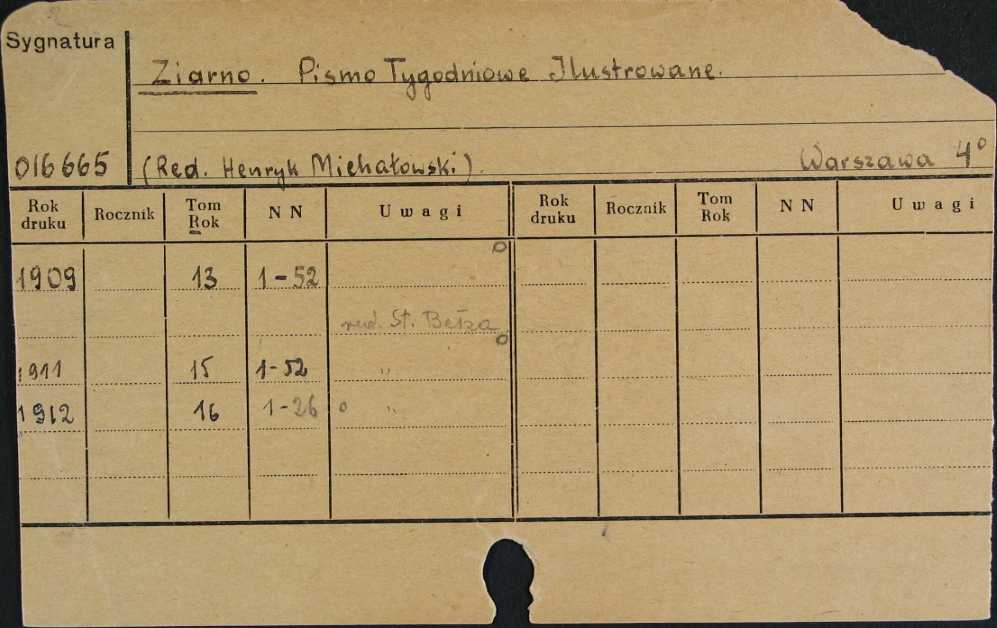 Sygnatura
Ziarno. Pismo Tygodniowe Ilustrowane.
016665 (Red. Henryk Michałowski). Warszawa 4°
Rok druku Rocznik Tom Rok N N Uwagi Rok druku Rocznik Tom Rok N N Uwagi
1909 13 1-52 o
red. St. Bełza o
1911 15 1-52 "
1912 16 1-26 o "